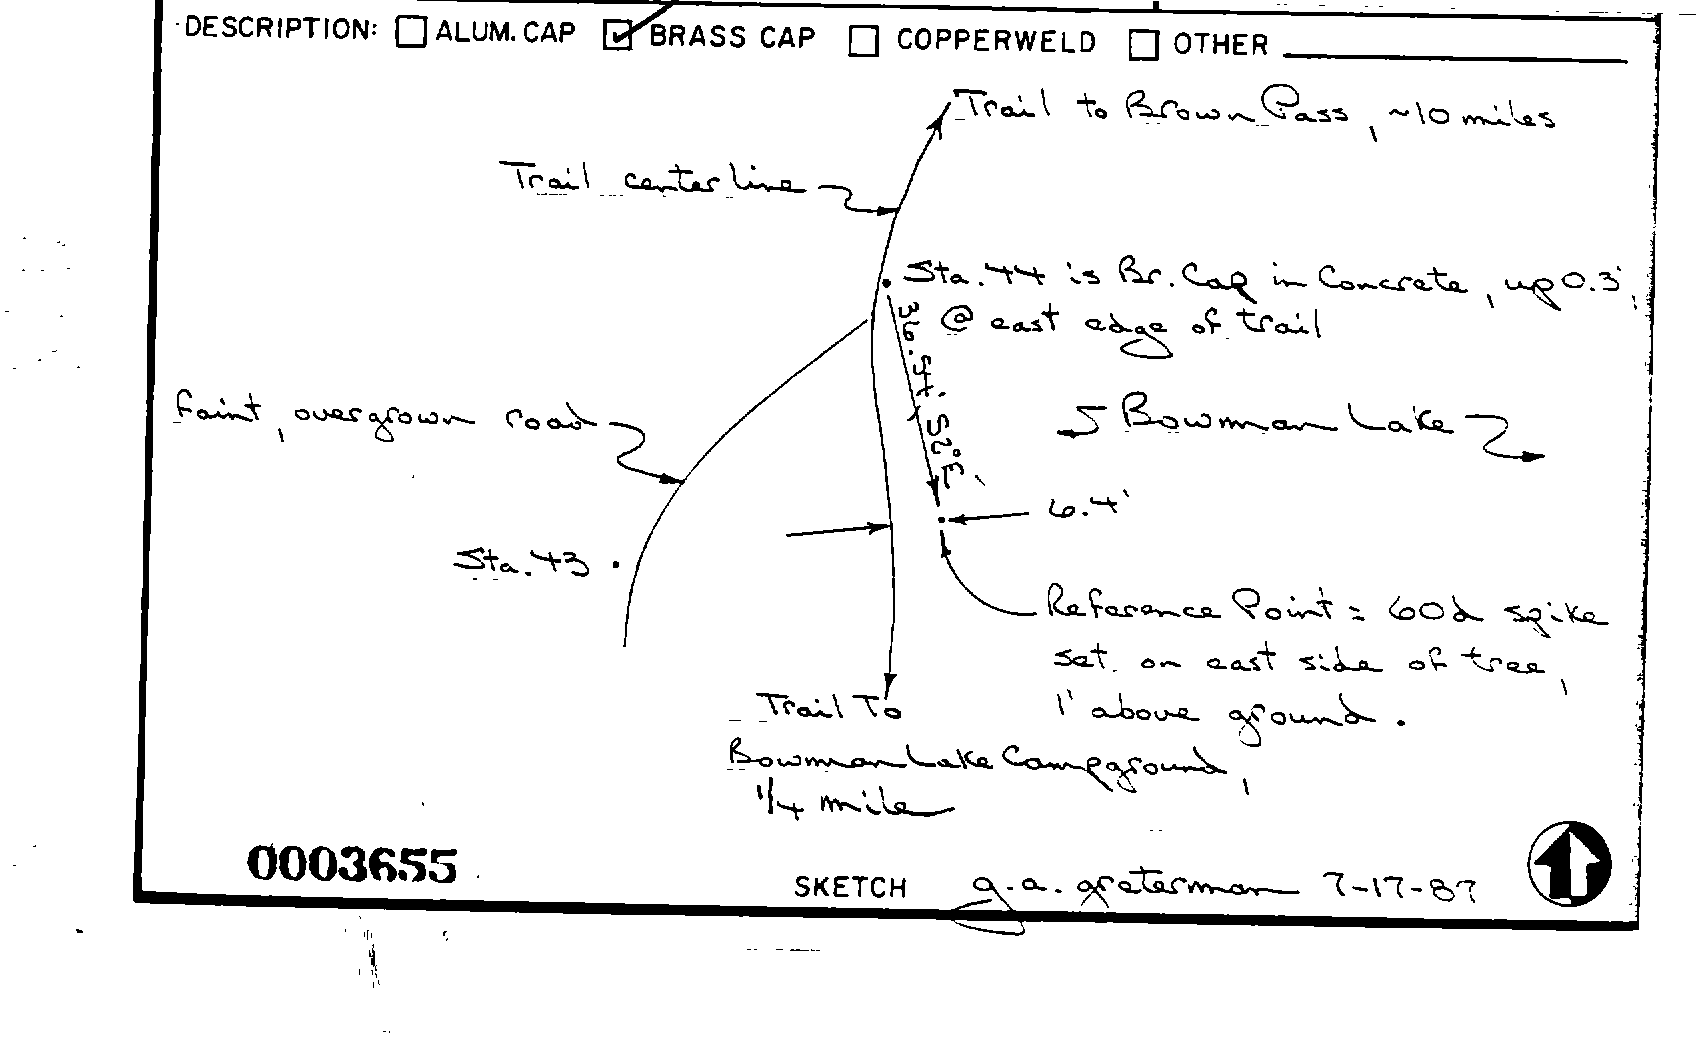 DESCRIPTION: ☐ ALUM. CAP ☑ BRASS CAP ☐ COPPERWELD ☐ OTHER
Trail to Brown Pass, ~10 miles
Trail centerline
Sta. 44 is Br. Cap in Concrete, up 0.3',
@ east edge of trail
36.54', S2°E
faint, overgrown road
Bowman Lake
6.4'
Sta. 43
Reference Point = 60d spike
set on east side of tree,
1' above ground.
Trail To
Bowman Lake Campground,
1/4 mile
0003655
SKETCH g.a. graterman 7-17-87